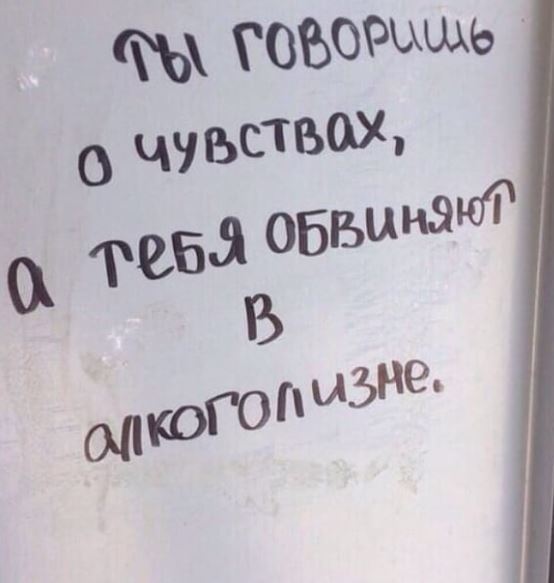 ты говоришь
о чувствах,
а тебя обвиняют
в
алкоголизне.